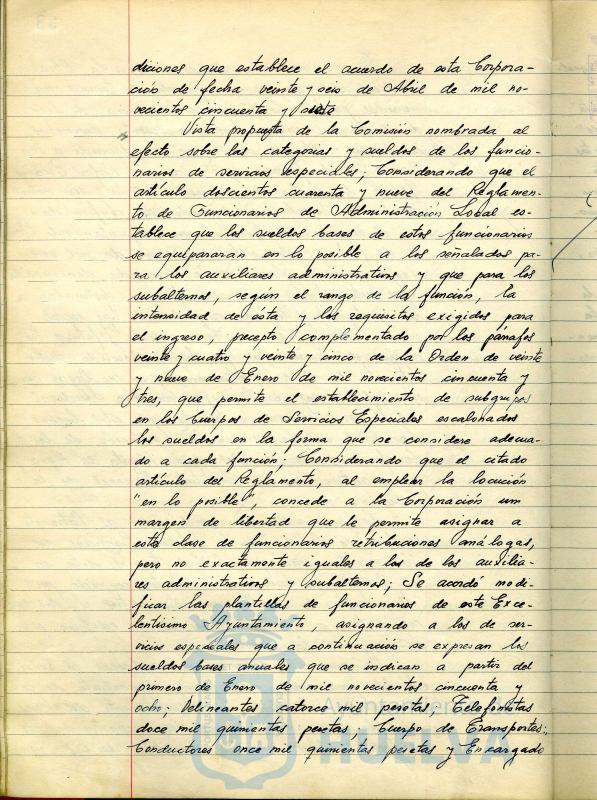 diciones que establece el acuerdo de esta Corpora-
ción de fecha veinte y seis de Abril de mil no-
vecientos cincuenta y siete
Vista propuesta de la Comisión nombrada al
efecto sobre las categorias y sueldos de los funcio-
narios de servicios especiales; Considerando que el
artículo doscientos cuarenta y nueve del Reglamen-
to de Funcionarios de Administración Local es-
tablece que los sueldos bases de estos funcionarios
se equipararan en lo posible a los señalados pa-
ra los auxiliares administrativos y que para los
subalternos, según el rango de la función, la
intensidad de ésta y los requisitos exigidos para
el ingreso, precepto complementado por los párrafos
veinte y cuatro y veinte y cinco de la Orden de veinte
y nueve de Enero de mil novecientos cincuenta y
tres, que permite el establecimiento de subgrupos
en los Cuerpos de Servicios Especiales escalonados
los sueldos en la forma que se considere adecua-
do a cada función; Considerando que el citado
artículo del Reglamento, al emplear la locución
"en lo posible", concede a la Corporación un
margen de libertad que le permite asignar a
esta clase de funcionarios retribuciones análogas,
pero no exactamente iguales a los de los auxilia-
res administrativos y subalternos; Se acordó modi-
ficar las plantillas de funcionarios de este Exce-
lentisimo Ayuntamiento, asignando a los de ser-
vicios especiales que a continuación se expresan los
sueldos bases anuales que se indican a partir del
primero de Enero de mil novecientos cincuenta y
ocho; Delineantes catorce mil pesetas; Telefonistas
doce mil quinientas pesetas; Cuerpo de Transportes:
Conductores once mil quinientas pesetas y Encargado
HUELVA